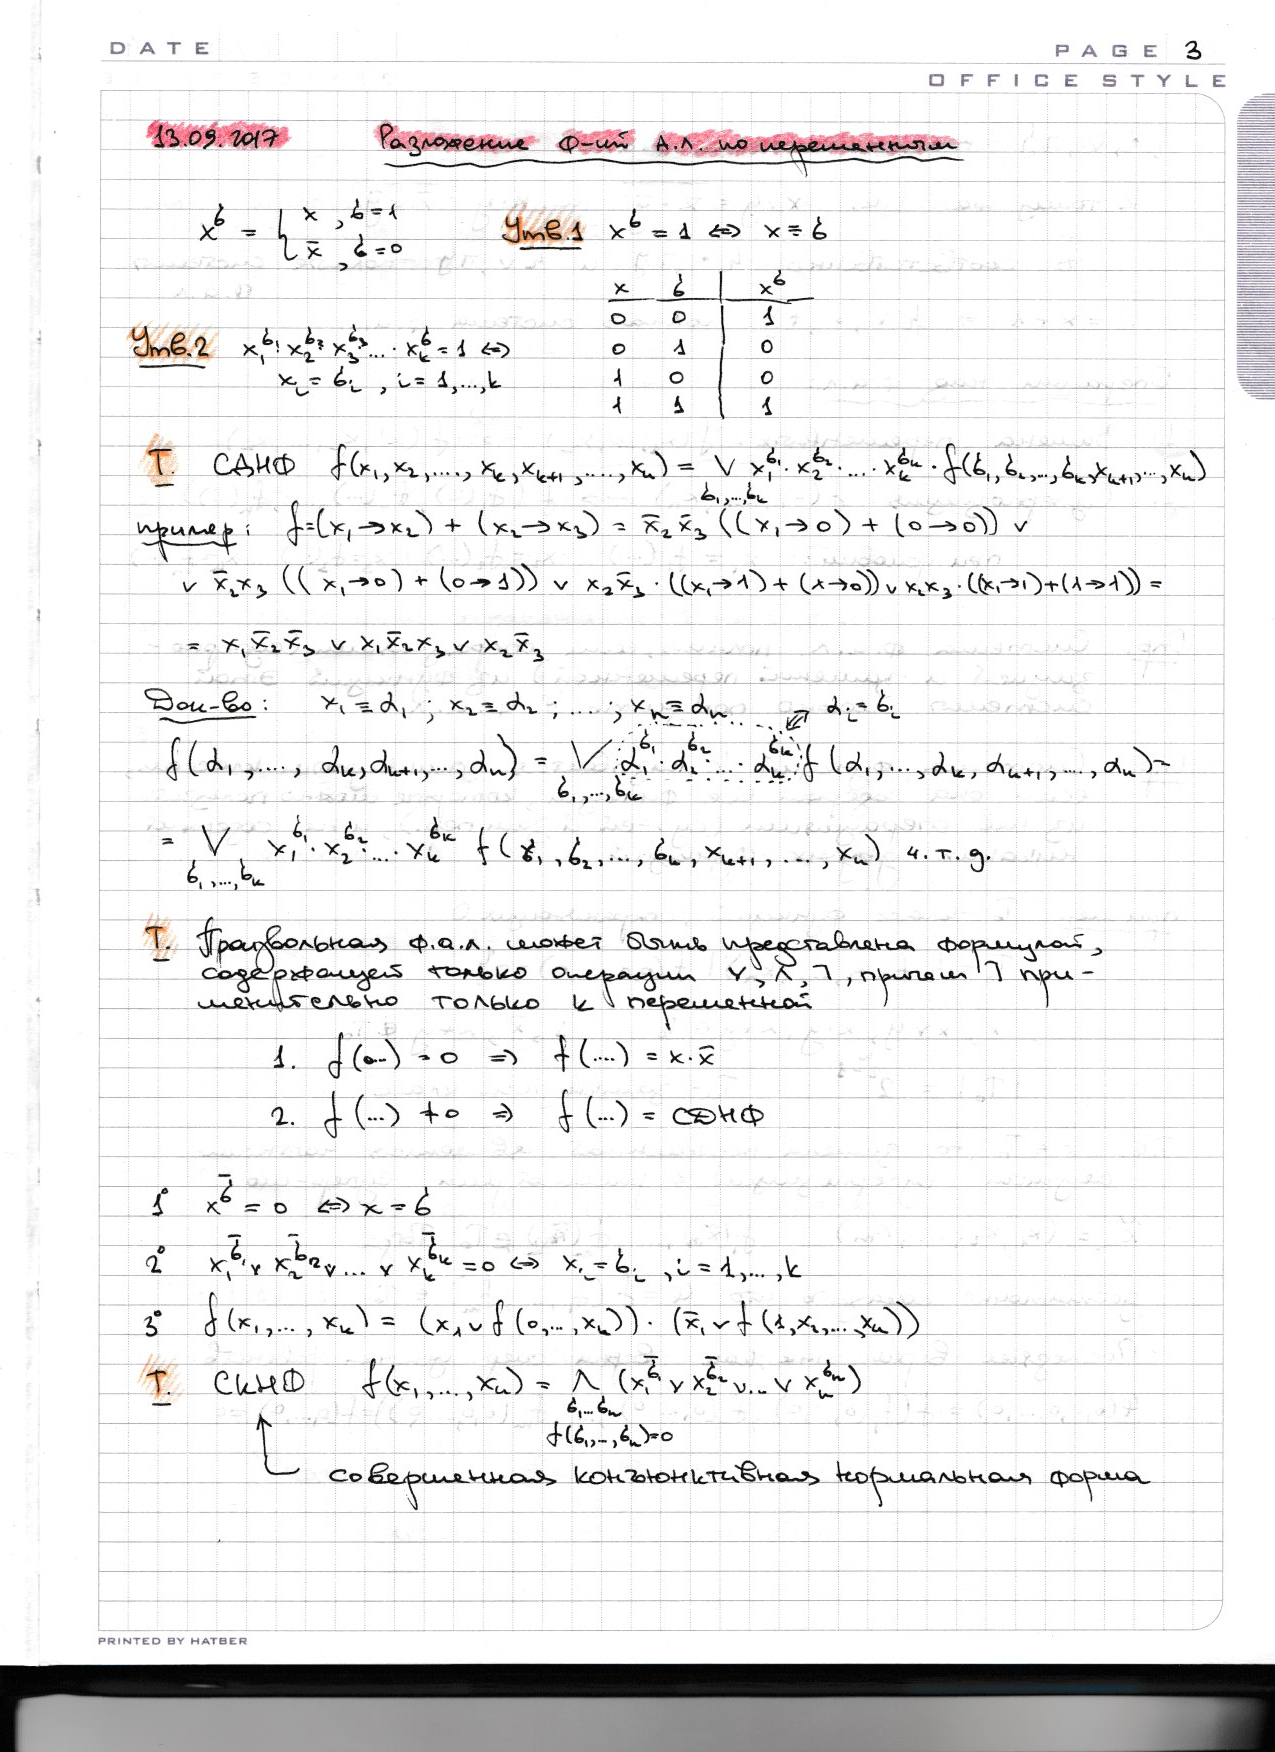 DATE PAGE 3
OFFICE STYLE
13.09.2017 Разложение Ф-ий А.Л. по переменным
x^б = { x, б=1
x̄, б=0
Утв.1 x^б = 1 ⇔ x = б
x б | x^б
0 0 | 1
0 1 | 0
1 0 | 0
1 1 | 1
Утв.2 x₁^б₁ · x₂^б₂ · x₃^б₃ · ... · x_k^б = 1 ⇔
x_i = б_i, i = 1,...,k
Т. СДНФ f(x₁, x₂, ...., x_k, x_{k+1}, ...., x_n) = ∨ x₁^б₁ · x₂^б₂ · ... · x_k^б_k · f(б₁, б₂, ..., б_k, x_{k+1}, ..., x_n)
б₁,...,б_k
пример: f = (x₁→x₂) + (x₂→x₃) = x̄₂x̄₃((x₁→0) + (0→0)) ∨
∨ x̄₂x₃((x₁→0) + (0→1)) ∨ x₂x̄₃·((x₁→1) + (1→0)) ∨ x₂x₃·((x₁→1)+(1→1)) =
= x₁x̄₂x̄₃ ∨ x₁x̄₂x₃ ∨ x₂x̄₃
Док-во: x₁ = α₁; x₂ = α₂; ...; x_n = α_n ⇔ α_i = б_i
f(α₁, ...., α_k, α_{k+1}, ..., α_n) = ∨ α₁^б₁ · α₂^б₂ · ... · α_k^б_k · f(α₁, ..., α_k, α_{k+1}, ..., α_n) =
б₁,...,б_k
= ∨ x₁^б₁ · x₂^б₂ · ... · x_k^б_k f(б₁, б₂, ..., б_k, x_{k+1}, ..., x_n) ч.т.д.
б₁,...,б_k
Т. Произвольная ф.а.л. может быть представлена формулой,
содержащей только операции ∨, ∧, ¬, причем ¬ при-
менительно только к переменной
1. f(...) = 0 ⇒ f(....) = x·x̄
2. f(...) ≠ 0 ⇒ f(...) = СДНФ
1° x^б̄ = 0 ⇔ x = б
2° x₁^б̄₁ ∨ x₂^б̄₂ ∨ ... ∨ x_k^б̄_k = 0 ⇔ x_i = б_i, i = 1,...,k
3° f(x₁, ..., x_k) = (x₁ ∨ f(0, ..., x_k)) · (x̄₁ ∨ f(1, x₂, ..., x_n))
Т. СКНФ f(x₁, ..., x_n) = ∧ (x₁^б̄₁ ∨ x₂^б̄₂ ∨ ... ∨ x_n^б̄_n)
б₁...б_n
f(б₁,...,б_n)=0
совершенная конъюнктивная нормальная форма
PRINTED BY HATBER